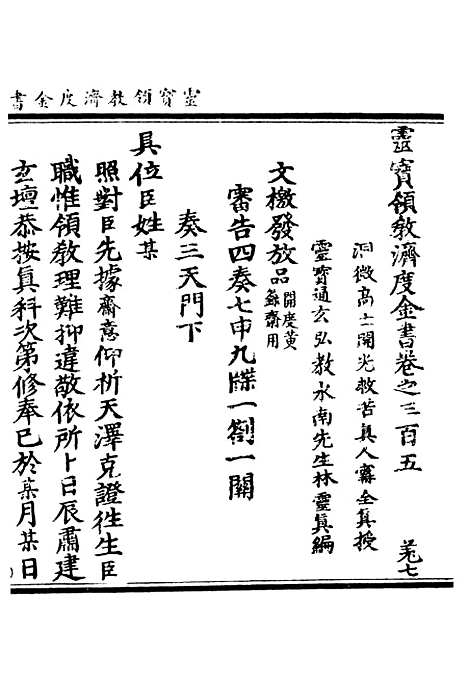 靈寶領教濟度金書
靈寶領教濟度金書卷之三百五
羌七
洞微高士開光救苦真人甯全真授
靈寶通玄弘教水南先生林靈真編
文檄發放品開度黃籙齋用
審告四奏七申九牒一劄一關
奏三天門下
具位臣姓某
照對臣先據齋意仰祈天澤克證往生臣
職惟領教理難抑違敬依所卜日辰肅建
玄壇恭按真科次第修奉已於某月某日